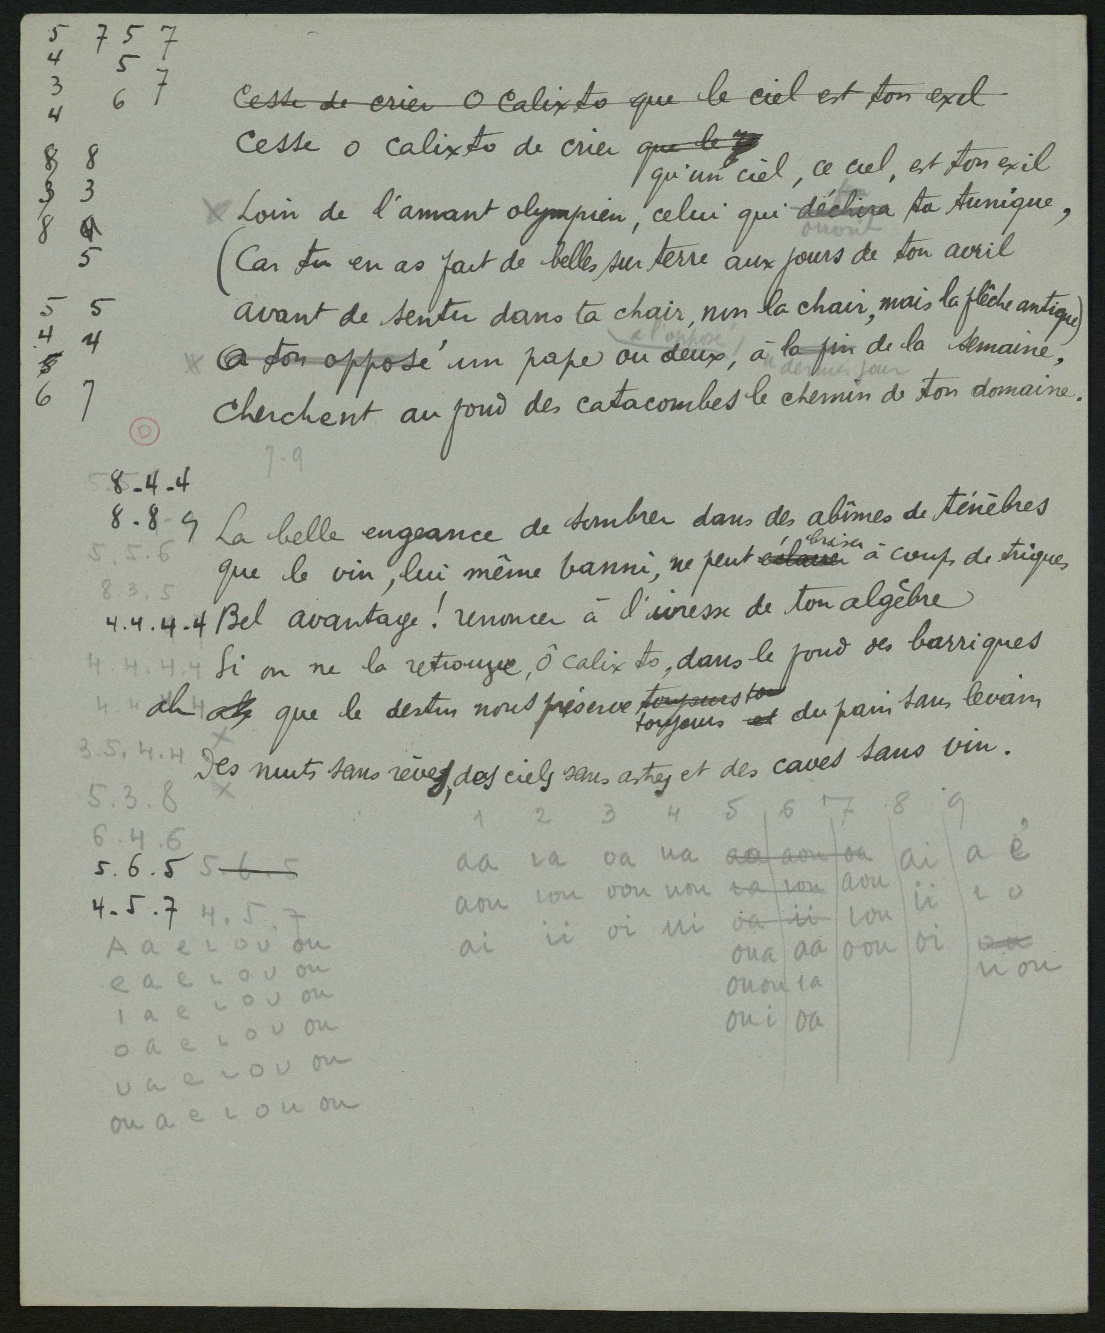 5 7 5 7
4 5 7
3 6
4
Cesse de crier O Calixto que le ciel est ton exil
Cesse o calixto de crier que le
8 8
qu'un ciel, ce ciel, est ton exil
3 3
x Loin de l'amant olympien, celui qui déchira ta tunique,
8 4
ouvrit
5
(Car tu en as fait de belles sur terre aux jours de ton avril
5 5
avant de sentir dans ta chair, non la chair, mais la flèche antique)
4 4
a l'opposé,
x A ton opposé un pape ou deux, à la fin de la semaine,
dernier jour
6 7
Cherchent au fond des catacombes le chemin de ton domaine.
D
7-9
8-4-4
8-8-9
La belle engeance de sombrer dans des abîmes de ténèbres
5.5.6
briser
que le vin, lui même banni, ne peut éclairer à coups de triques
8.3.5
4.4.4.4 Bel avantage! renoncer à l'ivresse de ton algèbre
4.4.4.4 Si on ne la retrouve, ô calixto, dans le fond des barriques
4.4.4.4
ah que le destin nous préserve toujours
toujours et du pain sans levain
3.5.4.4 x
Des nuits sans rêves, des ciels sans astres et des caves sans vin.
5.3.8 x
6.4.6
5.6.5 5.6.5
4.5.7 4.5.7
1 2 3 4 5 6 7 8 9
aa ia oa ua aa aou oa ai a é
aou iou oou uou ia iou aou ii i o
ai ii oi ui oa ii iou oi
oua aa oou
u ou
ouou ia
oui oa
A a e i o u ou
e a e i o u ou
i a e i o u ou
o a e i o u ou
u a e i o u ou
ou a e i o u ou